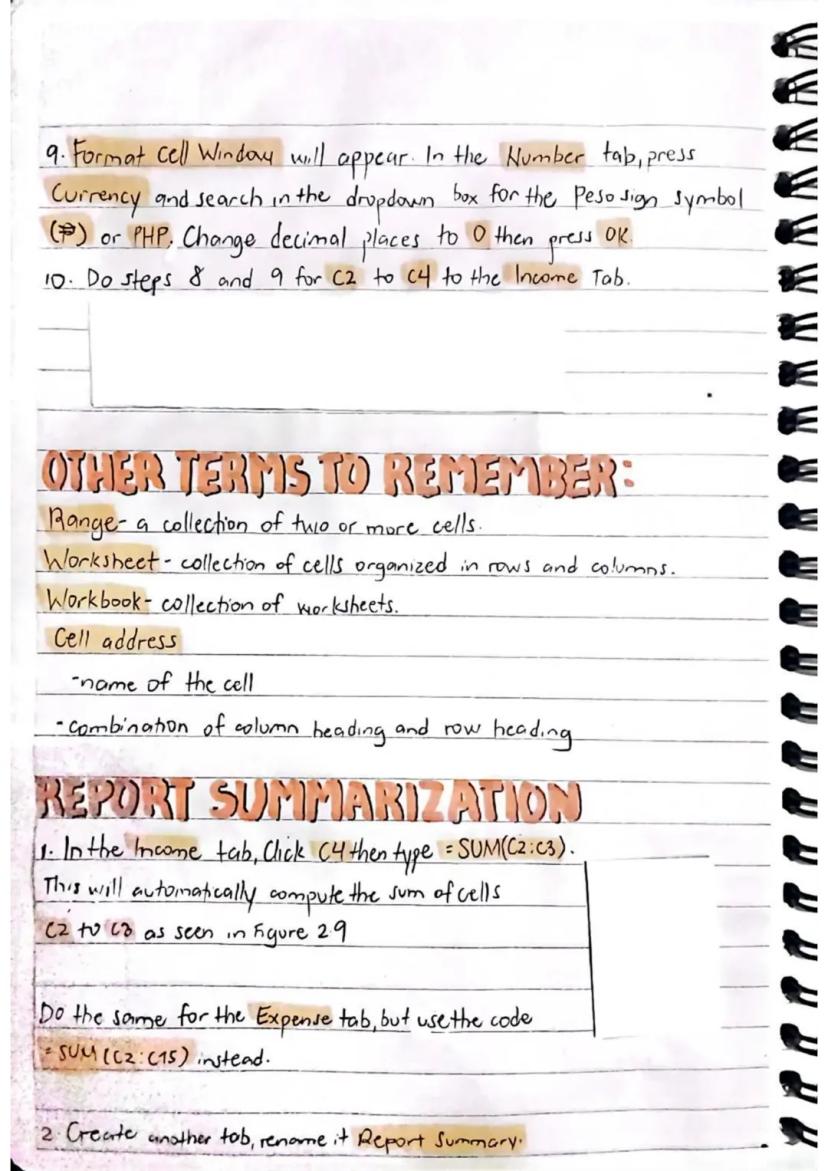 9. Format Cell Window will appear. In the Number tab, press
Currency and search in the dropdown box for the Peso sign symbol
(₱) or PHP. Change decimal places to 0 then press OK.
10. Do steps 8 and 9 for C2 to C4 to the Income Tab.
OTHER TERMS TO REMEMBER:
Range- a collection of two or more cells.
Worksheet - collection of cells organized in rows and columns.
Workbook- collection of worksheets.
Cell address
-name of the cell
-combination of column heading and row heading
REPORT SUMMARIZATION
1. In the Income tab, Click C4 then type =SUM(C2:C3).
This will automatically compute the sum of cells
C2 to C3 as seen in Figure 2.9
Do the same for the Expense tab, but use the code
=SUM(C2:C15) instead.
2. Create another tab, rename it Report Summary.